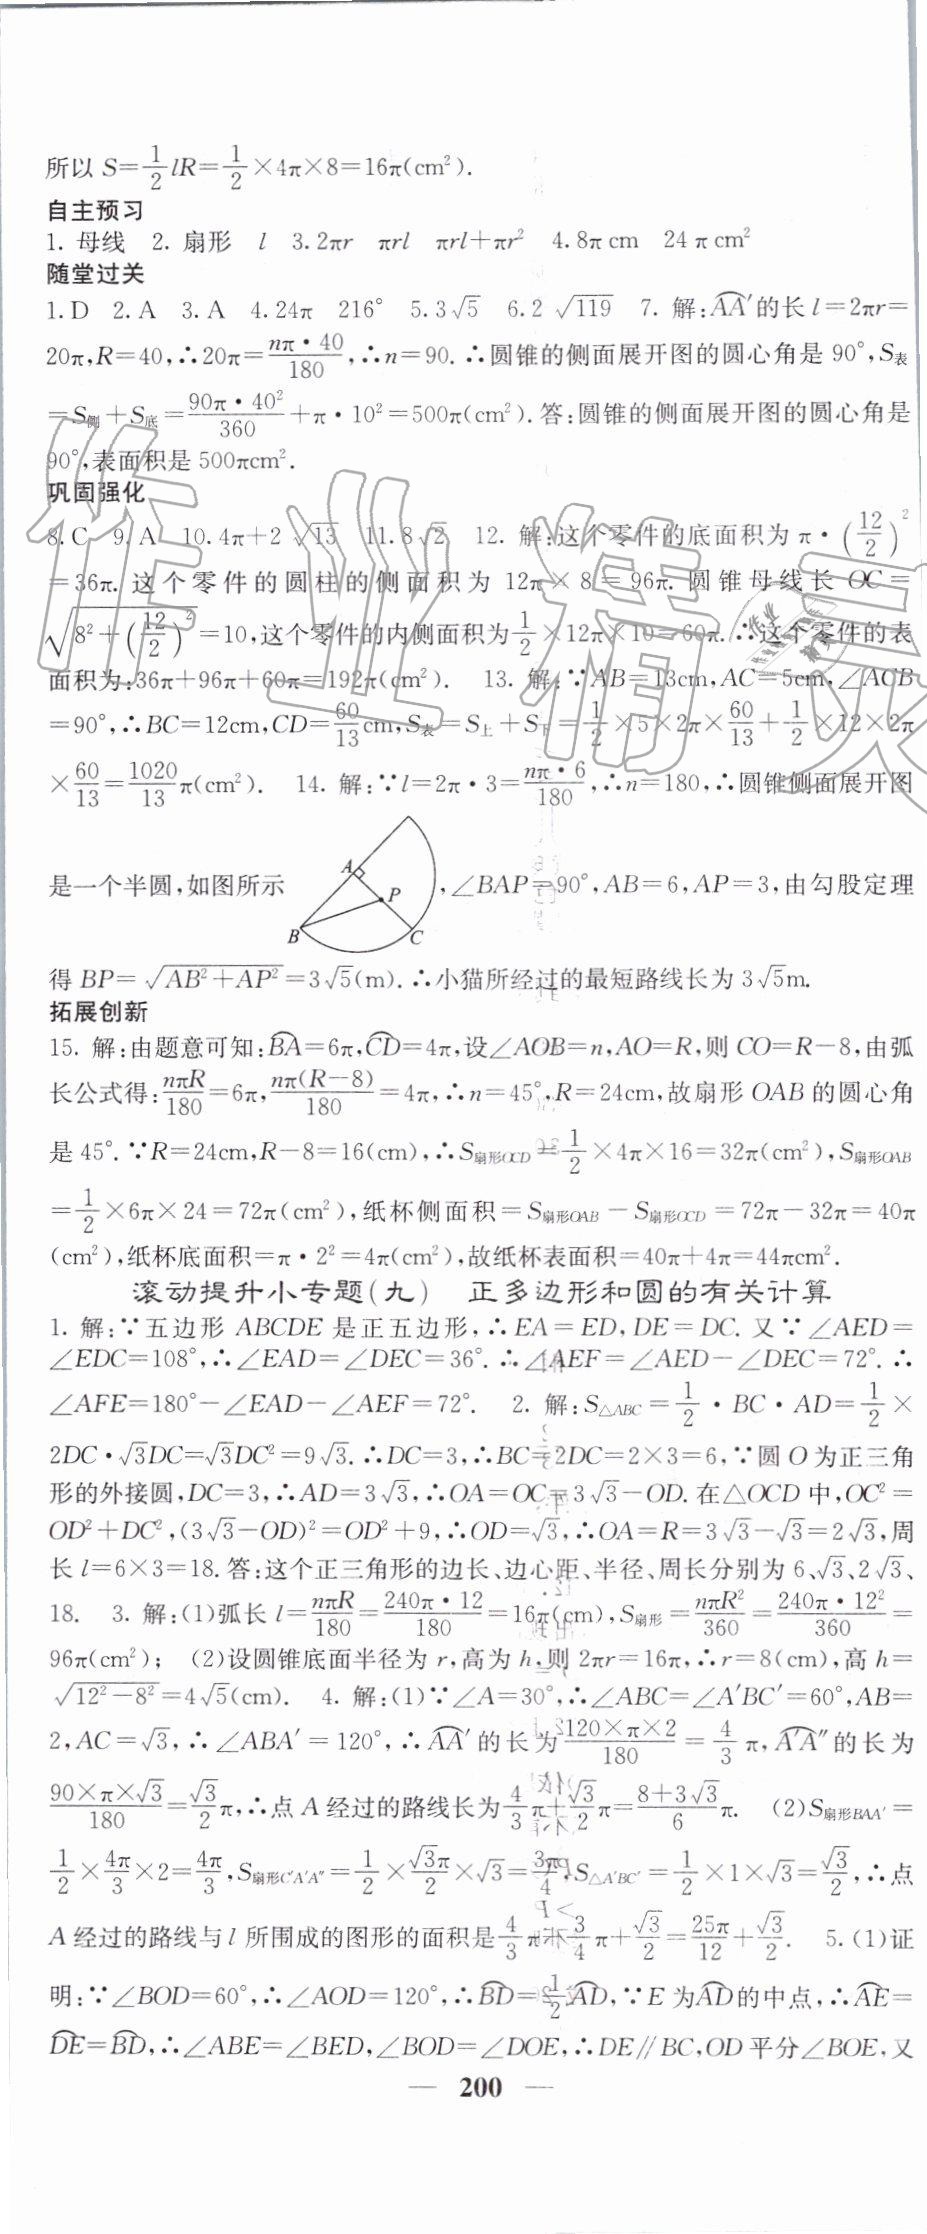 所以 S=1/2 lR=1/2×4π×8=16π(cm²).
自主预习
1. 母线 2. 扇形 l 3.2πr πrl πrl+πr² 4.8π cm 24 π cm²
随堂过关
1.D 2.A 3.A 4.24π 216° 5.3√5 6.2√119 7. 解:A͡A′的长 l=2πr=
20π,R=40,∴20π=nπ·40/180,∴n=90.∴圆锥的侧面展开图的圆心角是 90°,S表
=S侧+S底=90π·40²/360+π·10²=500π(cm²).答:圆锥的侧面展开图的圆心角是
90°,表面积是 500πcm².
巩固强化
8.C 9.A 10.4π+2√13 11.8√2 12. 解:这个零件的底面积为 π·(12/2)²
=36π. 这个零件的圆柱的侧面积为 12π×8=96π. 圆锥母线长 OC=
√(8²+(12/2)²)=10,这个零件的内侧面积为1/2×12π×10=60π.∴这个零件的表
面积为:36π+96π+60π=192π(cm²). 13. 解:∵AB=13cm,AC=5cm,∠ACB
=90°,∴BC=12cm,CD=60/13cm,S表=S上+S下=1/2×5×2π×60/13+1/2×12×2π
×60/13=1020/13π(cm²). 14. 解:∵l=2π·3=nπ·6/180,∴n=180,∴圆锥侧面展开图
是一个半圆,如图所示 A P B C ,∠BAP=90°,AB=6,AP=3,由勾股定理
得 BP=√(AB²+AP²)=3√5(m).∴小猫所经过的最短路线长为 3√5m.
拓展创新
15. 解:由题意可知:B͡A=6π,C͡D=4π,设∠AOB=n,AO=R,则 CO=R−8,由弧
长公式得:nπR/180=6π,nπ(R−8)/180=4π,∴n=45°,R=24cm,故扇形 OAB 的圆心角
是 45°.∵R=24cm,R−8=16(cm),∴S扇形OCD=1/2×4π×16=32π(cm²),S扇形OAB
=1/2×6π×24=72π(cm²),纸杯侧面积=S扇形OAB−S扇形OCD=72π−32π=40π
(cm²),纸杯底面积=π·2²=4π(cm²),故纸杯表面积=40π+4π=44πcm².
滚动提升小专题(九) 正多边形和圆的有关计算
1. 解:∵五边形 ABCDE 是正五边形,∴EA=ED,DE=DC. 又∵∠AED=
∠EDC=108°,∴∠EAD=∠DEC=36°.∴∠AEF=∠AED−∠DEC=72°.∴
∠AFE=180°−∠EAD−∠AEF=72°. 2. 解:S△ABC=1/2·BC·AD=1/2×
2DC·√3DC=√3DC²=9√3.∴DC=3,∴BC=2DC=2×3=6,∵圆 O 为正三角
形的外接圆,DC=3,∴AD=3√3,∴OA=OC=3√3−OD. 在△OCD 中,OC²=
OD²+DC²,(3√3−OD)²=OD²+9,∴OD=√3,∴OA=R=3√3−√3=2√3,周
长 l=6×3=18.答:这个正三角形的边长、边心距、半径、周长分别为 6、√3、2√3、
18. 3. 解:(1)弧长 l=nπR/180=240π·12/180=16π(cm),S扇形=nπR²/360=240π·12²/360=
96π(cm²); (2)设圆锥底面半径为 r,高为 h,则 2πr=16π,∴r=8(cm),高 h=
√(12²−8²)=4√5(cm). 4. 解:(1)∵∠A=30°,∴∠ABC=∠A′BC′=60°,AB=
2,AC=√3,∴∠ABA′=120°,∴A͡A′的长为120×π×2/180=4/3π,A͡′A″的长为
90×π×√3/180=√3/2π,∴点 A 经过的路线长为4/3π+√3/2π=8+3√3/6π. (2)S扇形BAA′=
1/2×4π/3×2=4π/3,S扇形C′A′A″=1/2×√3π/2×√3=3π/4,S△A′BC′=1/2×1×√3=√3/2,∴点
A 经过的路线与 l 所围成的图形的面积是4/3π+3/4π+√3/2=25π/12+√3/2. 5.(1)证
明:∵∠BOD=60°,∴∠AOD=120°,∴B͡D=1/2A͡D,∵E 为A͡D的中点,∴A͡E=
D͡E=B͡D,∴∠ABE=∠BED,∠BOD=∠DOE,∴DE∥BC,OD 平分∠BOE,又
— 200 —
作业精灵